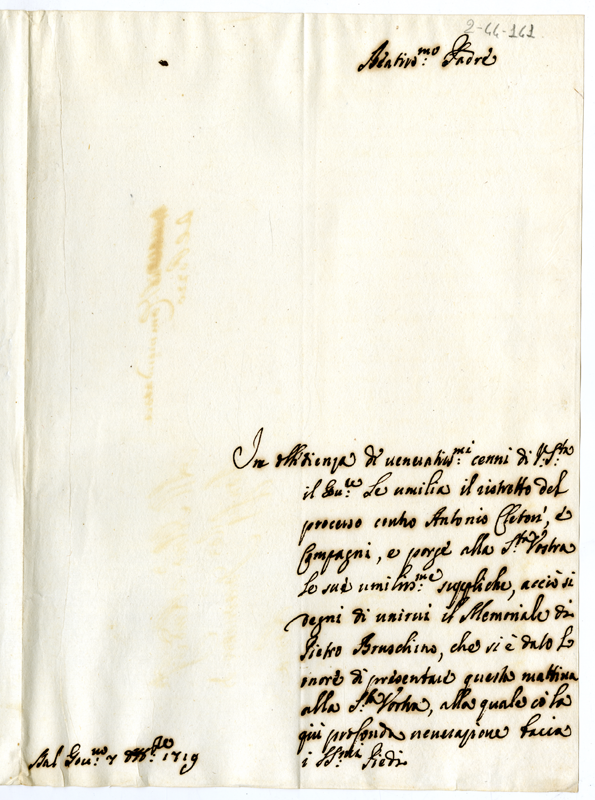 2-44-161
Beatiss.mo Padre
In obbidienza de veneratiss.mi cenni di V. S.tà
il Gov.re Le umilia il ristretto del
processo contro Antonio è
Compagni, e porge alla S.tà Vostra
le sue umiliss.me suppliche, acciò si
degni di unirvi il Memoriale di
Pietro Bruschino, che si è dato l'
onore di presentare questa mattina
alla S.tà Vostra, alla quale cò la
più profonda venerazione bacia
i SS.mi Piedi
Dal Gov.no 7 1719